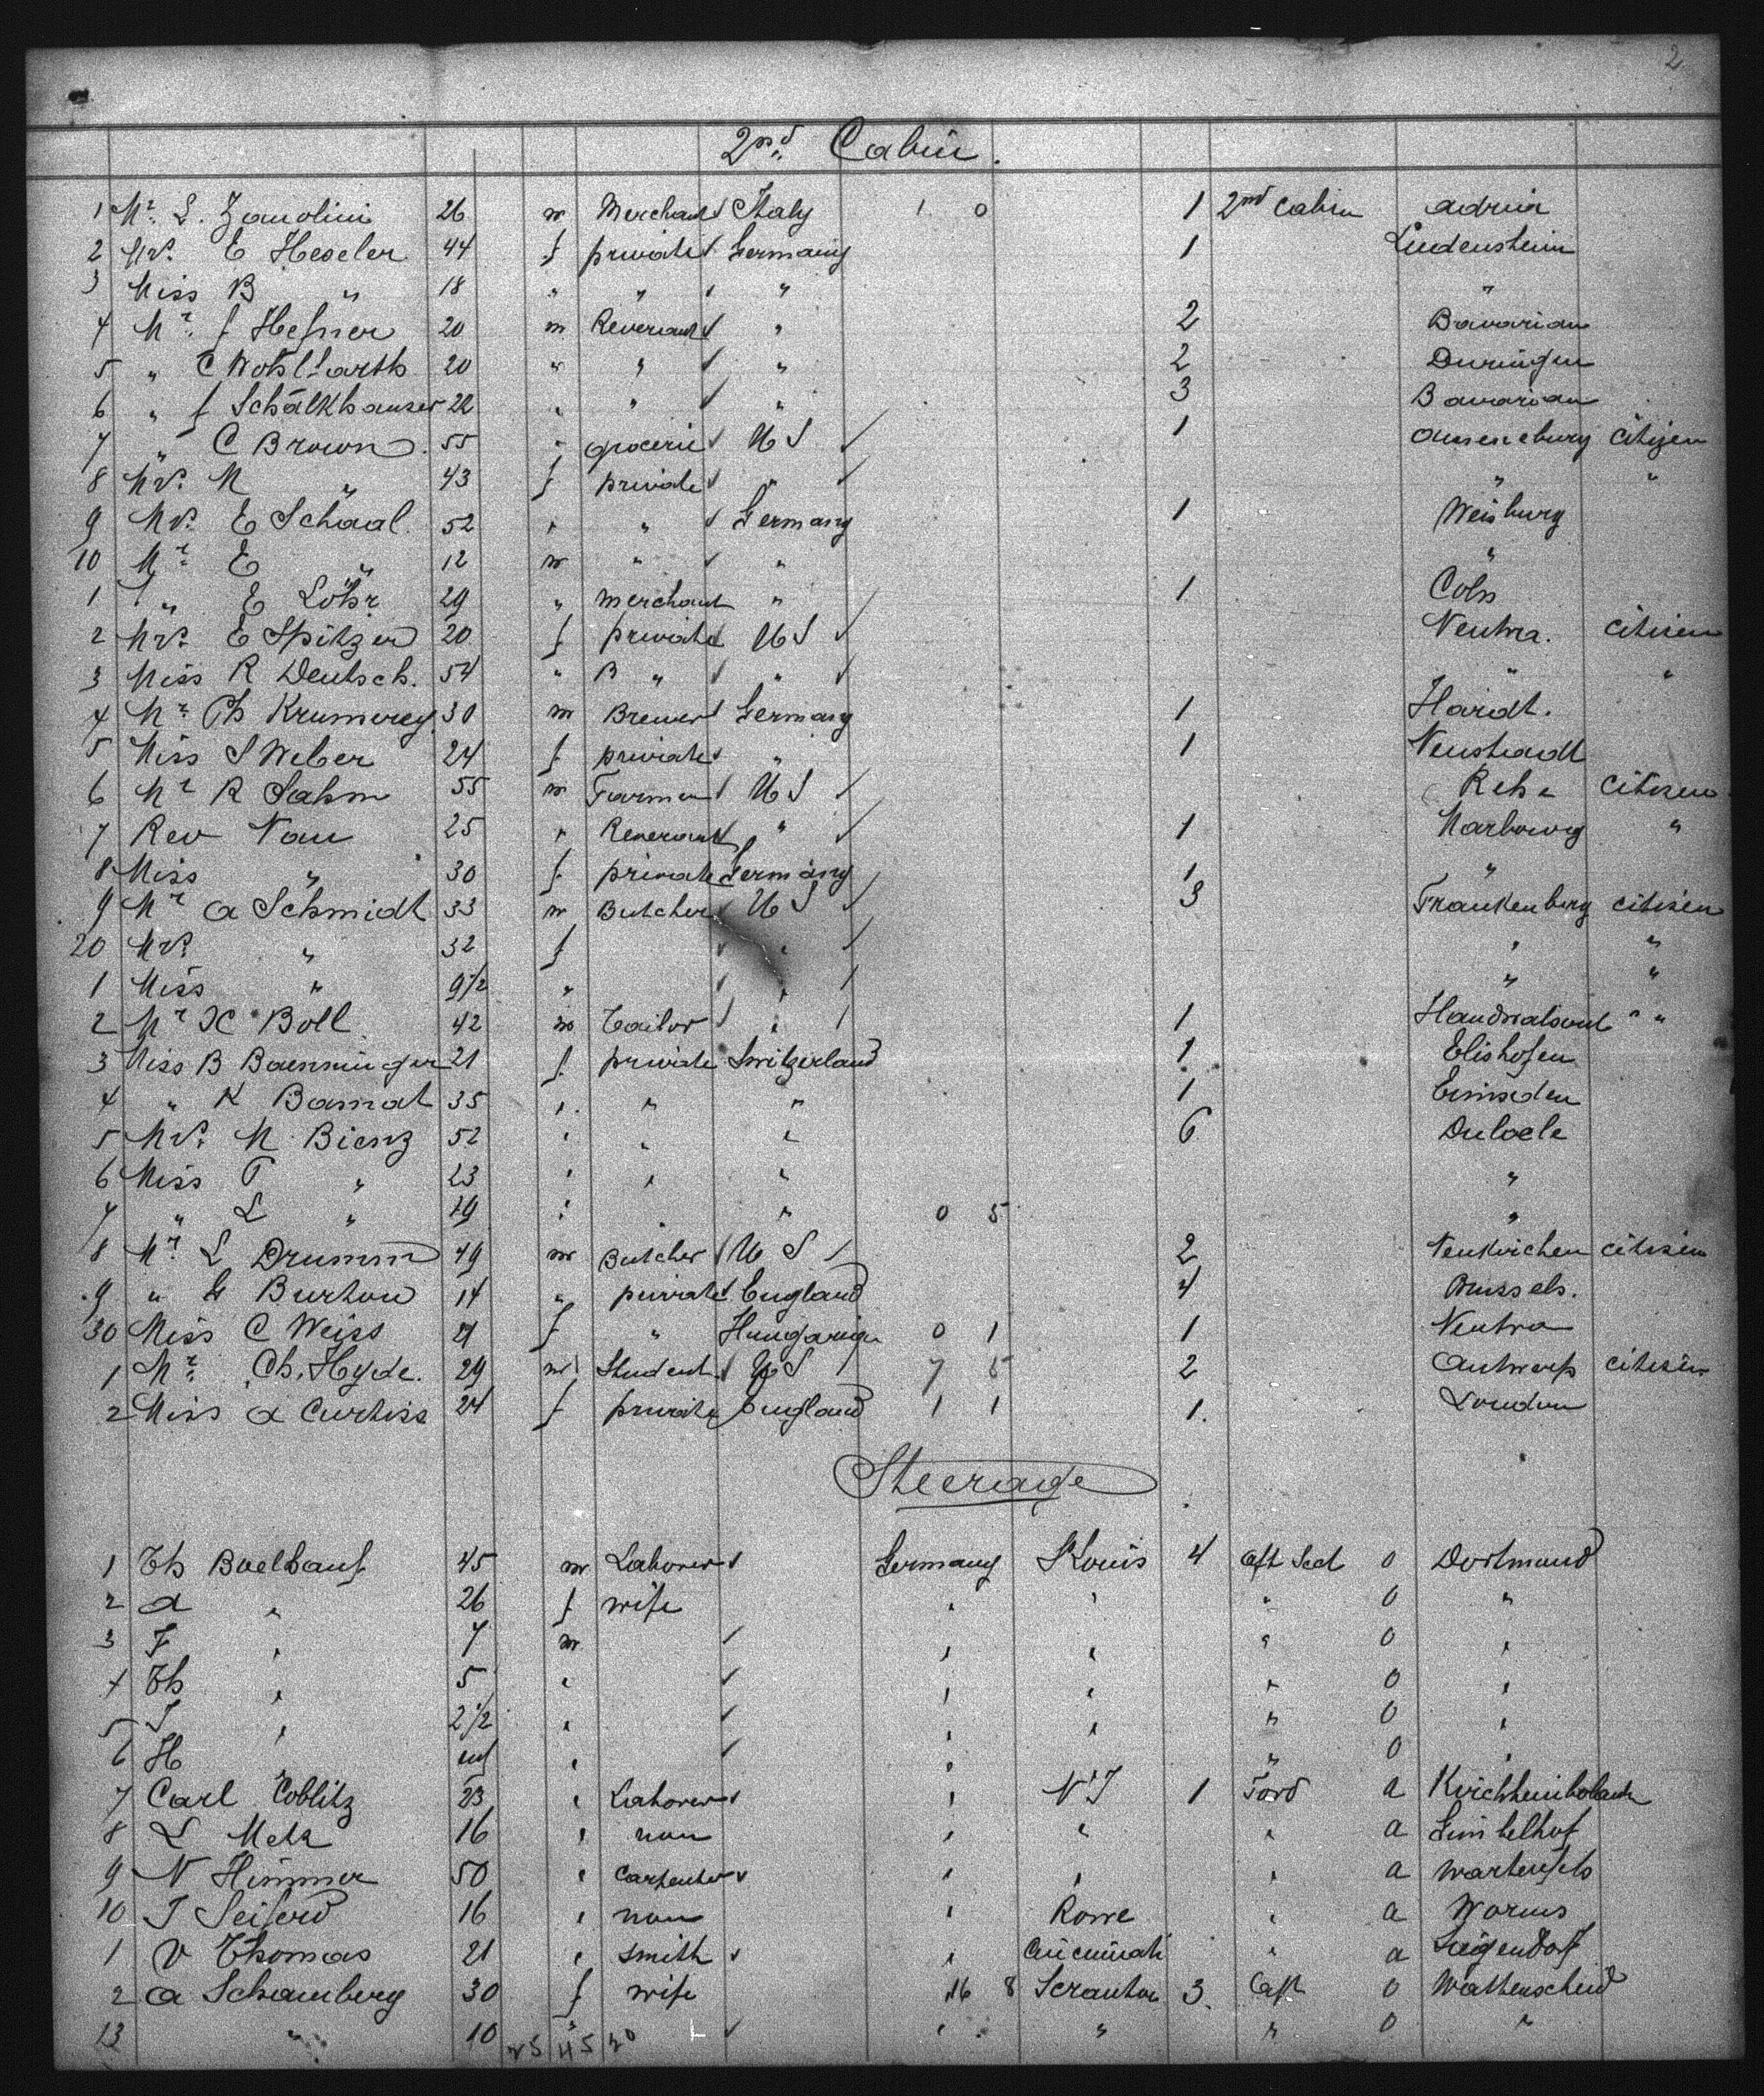 2
2nd Cabin.
1 Mr. L. Zanolini 26 m Merchant Italy 1 0 1 2nd cabin Adria
2 Mrs. E Heseler 44 f private Germany 1 Ludensheim
3 Miss B " 18 " " " "
4 Mr. J Hefner 20 m Reverant " 2 Bavarian
5 " C Wohlfarth 20 " " " 2 Duringen
6 " J Schälkhauser 22 " " " 3 Bavarian
7 " C Brown 55 " grocerie U S 1 citizen
8 Mrs. M " 43 f private " " "
9 Mrs. E Schaal 52 " " Germany 1 Weisburg
10 Mr. E " 12 m " " "
1 " E Löhr 29 " Merchant " 1 Coln
2 Mrs. E Spitzer 20 f private U S Neutra. citizen
3 Miss R Deutsch. 54 " B " " " "
4 Mr. Ph Krumrey 30 m Brewer Germany 1 Hardt.
5 Miss S Weber 24 f private " 1 Neustadt
6 Mr R Sahm 55 m Farmer U S Rehe citizen
7 Rev Nau 25 " Reverant " 1 Marbourg "
8 Miss " 30 f private Germany 1 "
9 Mr A Schmidt 33 m Butcher U S 3 Frankenberg citizen
20 Mrs. " 32 f " " "
1 Miss " 9 1/2 " " " "
2 Mr X Boll 42 m Tailor " 1 " "
3 Miss B Baenninger 21 f private Switzerland 1 Elishofen
4 " K Bamat 35 " " " 1 Einseden
5 Mrs. M Bienz 52 " " " 6
6 Miss P " 23 " " " "
7 " L " 19 " " " 0 5 "
8 Mr. L Drumm 49 m Butcher U S 2 Neukirchen citizen
9 " G Burton 14 " private England 4 Brussels.
30 Miss C Weiss f " Hungarian 0 1 1 Neutra
1 Mr. Ch. Hyde. 29 m Student U S 7 5 2 Antwerp citizen
2 Miss A Curtiss 24 f private England 1 1 1. London
Steerage
1 Th Boelhauf 45 m Laborer Germany St Louis 4 Aft Sect 0 Dortmund
2 A " 26 f wife " " " 0 "
3 F " 7 m " " " 0 "
4 Th " 5 " " " " 0 "
5 J " 2 1/2 " " " " 0 "
6 H " inf " " " 0 "
7 Carl Coblitz 23 " Laborer " N Y 1 Ford a Kirchheimboland
8 L Metz 16 " non " " " a Gimbelhof
9 N Himmer 50 " Carpenter " " " a Wartenfels
10 J Seiferd 16 " non " Rome " a Worms
1 V Thomas 21 " Smith " Cincinnati " a
2 A Schamberg 30 f wife 16 8 Scranton 3. Aft 0 Wattenscheid
13 " 10 " " " " 0 "
25 45 20